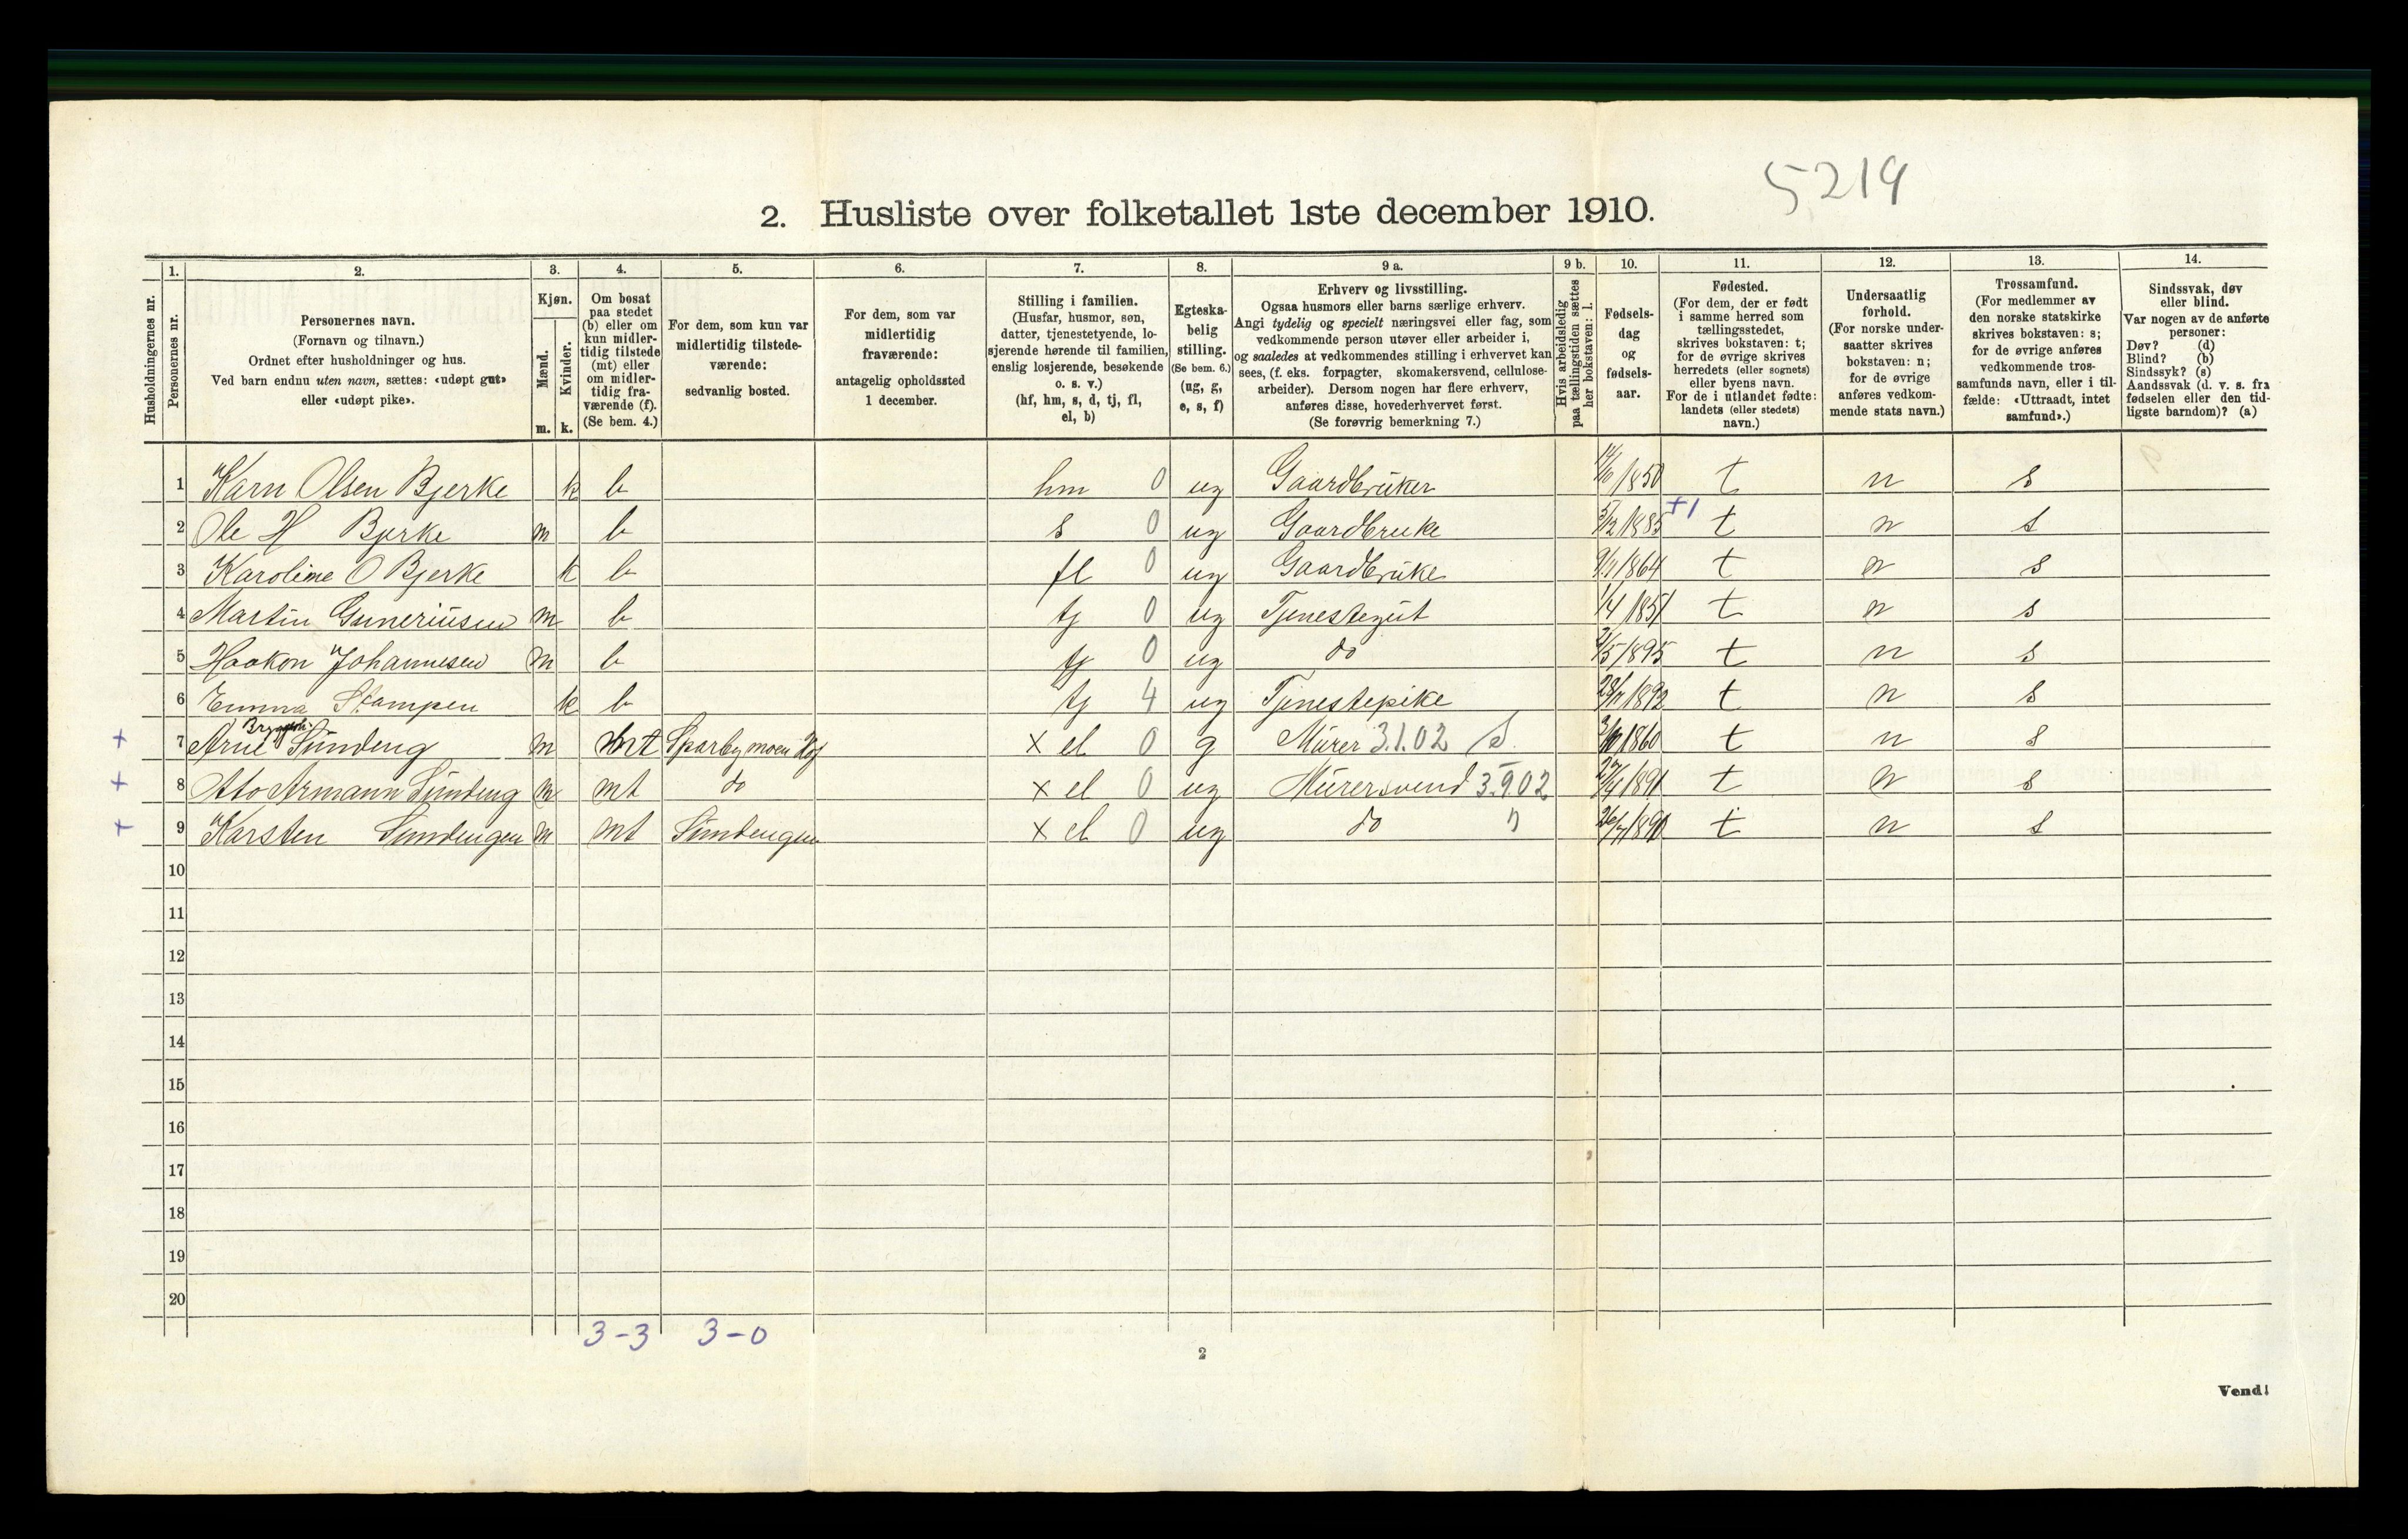 5219
2. Husliste over folketallet 1ste december 1910.
1. 2. 3. 4. 5. 6. 7. 8. 9 a. 9 b. 10. 11. 12. 13. 14.
Husholdningernes nr.
Personernes nr.
Personernes navn.
(Fornavn og tilnavn.)
Ordnet efter husholdninger og hus.
Ved barn endnu uten navn, sættes: «udøpt gut»
eller «udøpt pike».
Kjøn.
Mænd.
Kvinder.
m. k.
Om bosat
paa stedet
(b) eller om
kun midler-
tidig tilstede
(mt) eller
om midler-
tidig fra-
værende (f).
(Se bem. 4.)
For dem, som kun var
midlertidig tilstede-
værende:
sedvanlig bosted.
For dem, som var
midlertidig
fraværende:
antagelig opholdssted
1 december.
Stilling i familien.
(Husfar, husmor, søn,
datter, tjenestetyende, lo-
sjerende hørende til familien,
enslig losjerende, besøkende
o. s. v.)
(hf, hm, s, d, tj, fl,
el, b)
Egteska-
belig
stilling.
(Se bem. 6.)
(ug, g,
e, s, f)
Erhverv og livsstilling.
Ogsaa husmors eller barns særlige erhverv.
Angi tydelig og specielt næringsvei eller fag, som
vedkommende person utøver eller arbeider i,
og saaledes at vedkommendes stilling i erhvervet kan
sees, (f. eks. forpagter, skomakersvend, cellulose-
arbeider). Dersom nogen har flere erhverv,
anføres disse, hovederhvervet først.
(Se forøvrig bemerkning 7.)
Hvis arbeidsledig
paa tællingstiden sættes
her bokstaven: l.
Fødsels-
dag
og
fødsels-
aar.
Fødested.
(For dem, der er født
i samme herred som
tællingsstedet,
skrives bokstaven: t;
for de øvrige skrives
herredets (eller sognets)
eller byens navn.
For de i utlandet fødte:
landets (eller stedets)
navn.)
Undersaatlig
forhold.
(For norske under-
saatter skrives
bokstaven: n;
for de øvrige
anføres vedkom-
mende stats navn.)
Trossamfund.
(For medlemmer av
den norske statskirke
skrives bokstaven: s;
for de øvrige anføres
vedkommende tros-
samfunds navn, eller i til-
fælde: «Uttraadt, intet
samfund».)
Sindssvak, døv
eller blind.
Var nogen av de anførte
personer:
Døv? (d)
Blind? (b)
Sindssyk? (s)
Aandssvak (d. v. s. fra
fødselen eller den tid-
ligste barndom)? (a)
1 Karn Olsen Bjerke k b hm 0 ug Gaardbruker 1850 t n s
2 Ole H Bjerke m b s 0 ug Gaardbruke 5/12 1885 +1 t n s
3 Karoline O Bjerke k b fl 0 ug Gaardbruke 1864 t n s
4 Martin Guneriusen m b tj 0 ug Tjenestegut 1/4 1851 t n s
5 Haakon Johannesen m b tj 0 ug do 2/5 1895 t n s
6 Emma Stampen k b tj 4 ug Tjenestepike 1892 t n s
+ 7 Arne Sundeng m mt Sparbymoen Hof x el 0 g Murer 3.1.02 S. 1860 t n s
+ 8 Ato Armann Sundeng m mt do x el 0 ug Murersvend 3.9.02 27/4 1891 t n s
+ 9 Karsten Sundengen m mt Sundengen x el 0 ug do " 1890 t n s
10
11
12
13
14
15
16
17
18
19
20
3-3 3-0
2
Vend!